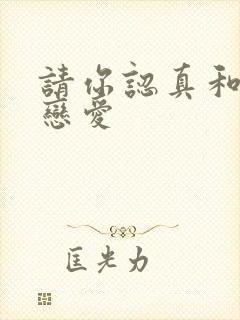 請你認真和
戀愛
匡光力